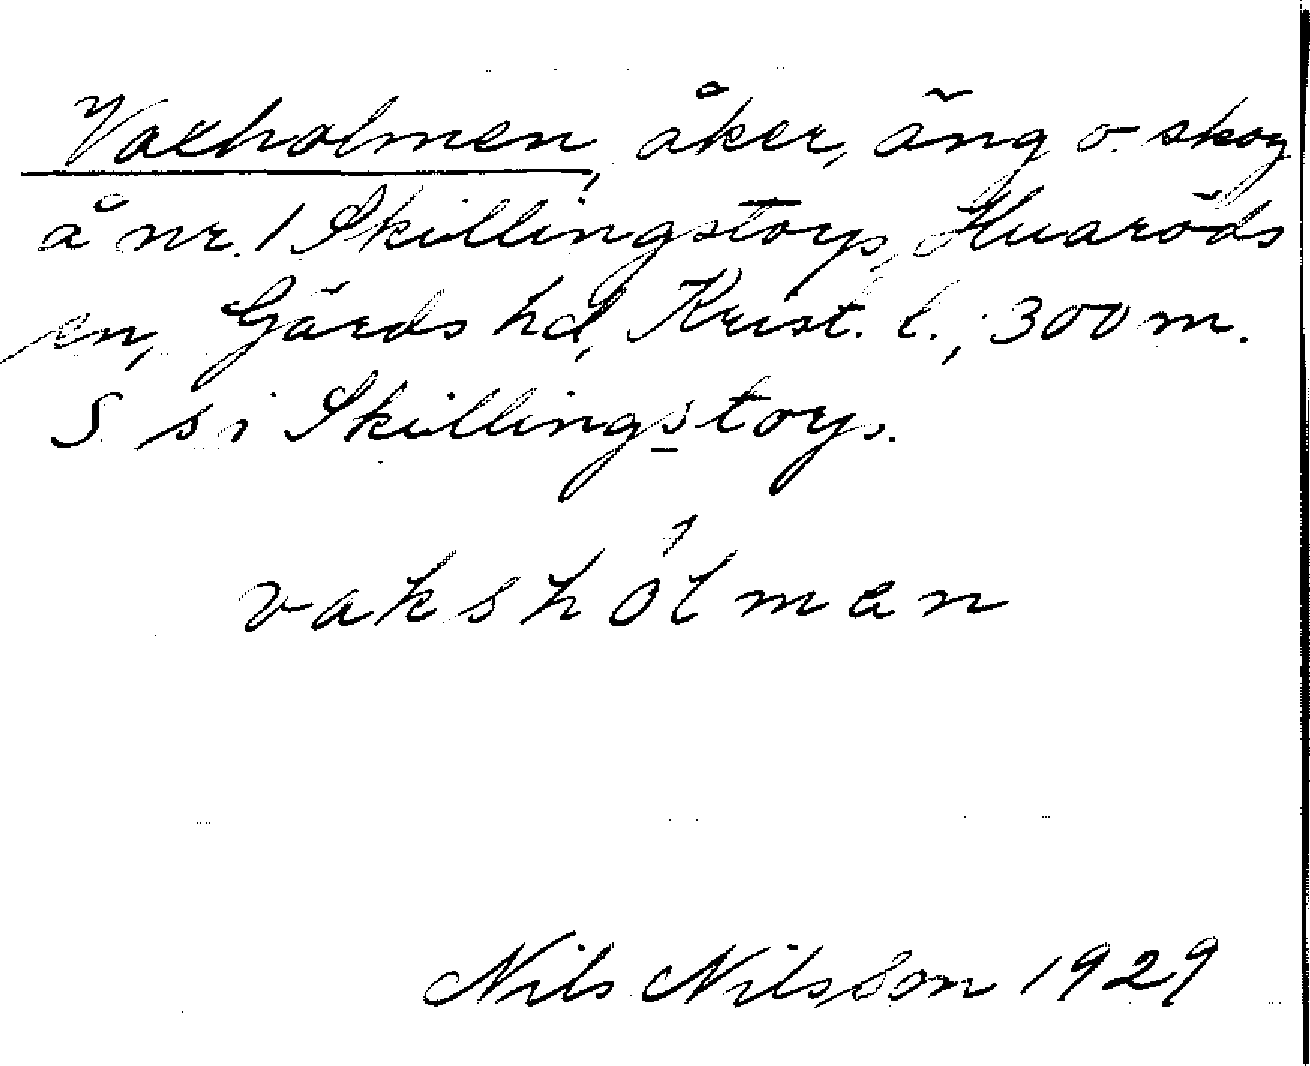 Vaxholmen, åker, äng o. skog
å nr. 1 Skillingstorp, Huaröds
sn, Gärds hd, Krist. l., 300 m.
S si Skillingstorp.
vakshólmen
Nils Nilsson 1929